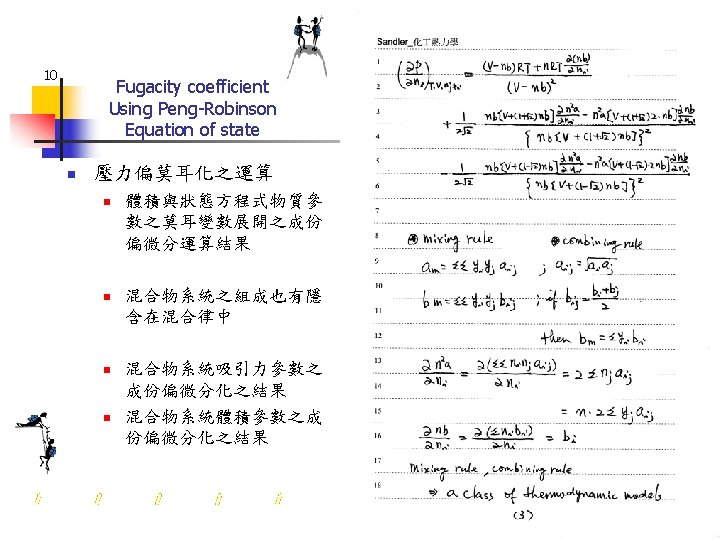 10
Fugacity coefficient
Using Peng-Robinson
Equation of state
壓力偏莫耳化之運算
體積與狀態方程式物質參
數之莫耳變數展開之成份
偏微分運算結果
混合物系統之組成也有隱
含在混合律中
混合物系統吸引力參數之
成份偏微分化之結果
混合物系統體積參數之成
份偏微分化之結果
Sandler_化工熱力學
1
(∂P/∂n_i)_{T,V,n_j≠i} = ((V-nb)RT + nRT ∂(nb)/∂n_i) / (V-nb)²
2
3
+ 1/(2√2) (nb[V+(1+√2)nb] ∂n²a/∂n_i - n²a[V+(1+√2)2·nb] ∂(nb)/∂n_i) / {nb[V+(1+√2)nb]}²
4
5
- 1/(2√2) (nb[V+(1-√2)nb] ∂n²a/∂n_i - n²a[V+(1-√2)2·nb] ∂(nb)/∂n_i) / {nb[V+(1-√2)nb]}²
6
7
8 mixing rule combining rule
9 a_m = ΣΣ y_i y_j a_ij ; a_ij = √(a_i a_j)
10
11 b_m = ΣΣ y_i y_j b_ij ; if b_ij = (b_i+b_j)/2
12 then b_m = Σ y_i b_i
13 ∂n²a/∂n_i = ∂(ΣΣ n_i n_j a_ij)/∂n_i = 2 Σ n_j a_ij
14
15 = n·2 Σ y_j a_ij
16 ∂nb/∂n_i = ∂(Σ n_i b_i)/∂n_i = b_i
17 mixing rule, combining rule
18 ⇒ a class of thermodynamic model
(3)